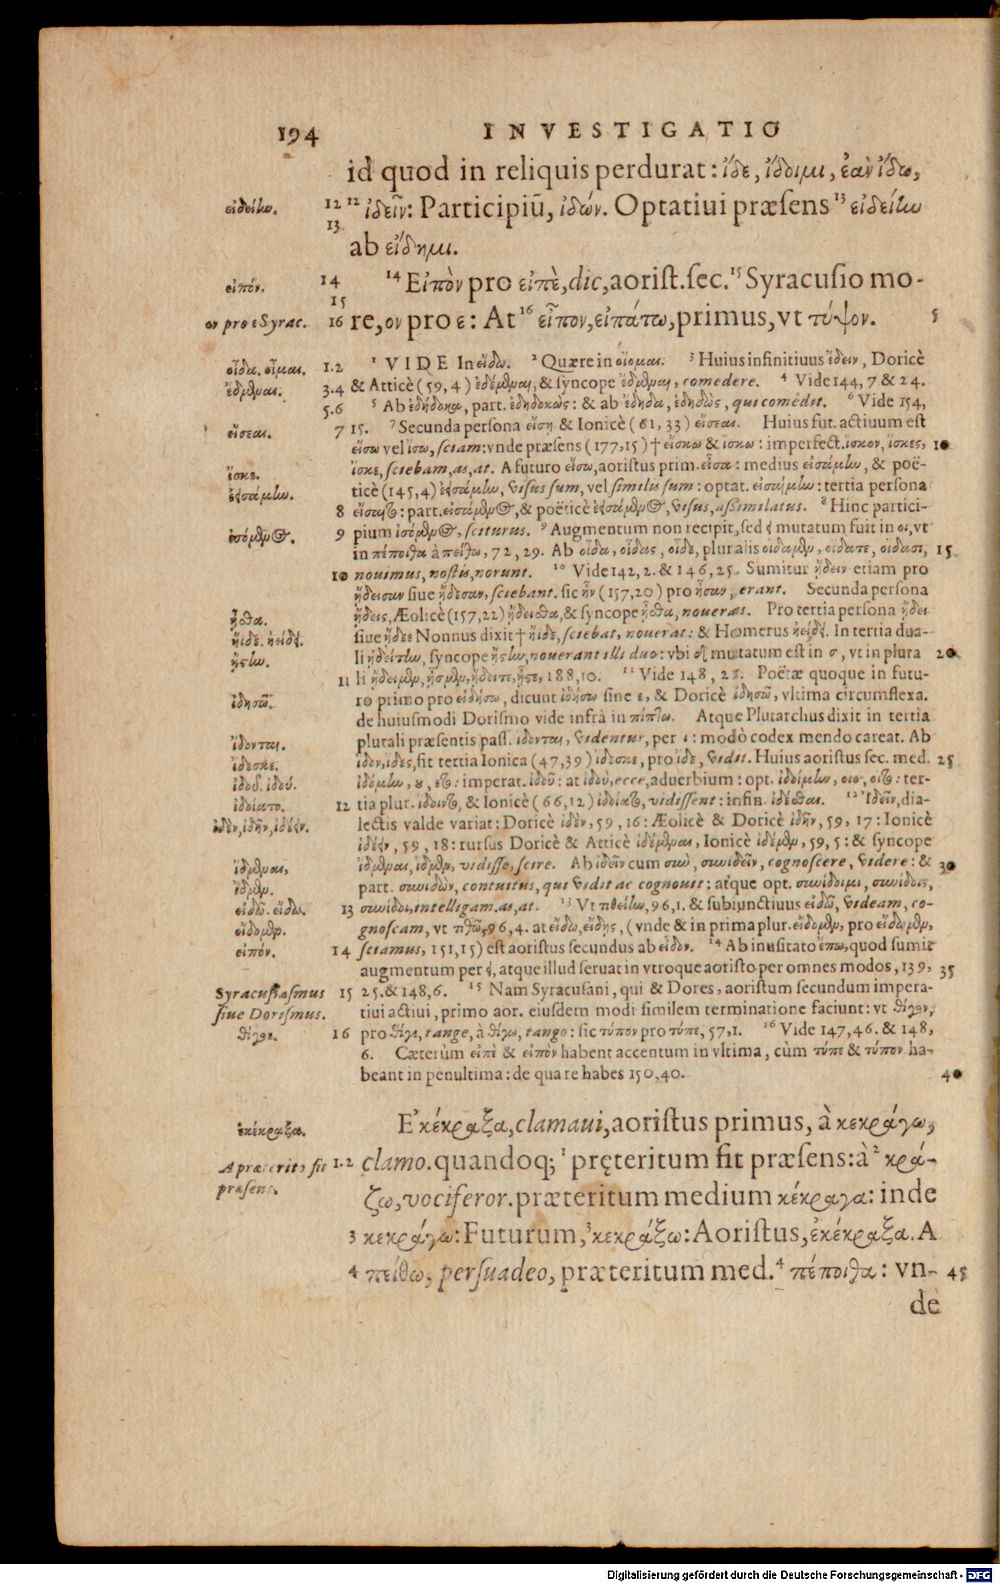 194 INVESTIGATIO
id quod in reliquis perdurat: ἴδε, ἴδοιμι, ἐὰν ἴδω,
εἰδείην. 12 ¹² ἰδεῖν: Participiū, ἰδών. Optatiui præsens ¹³ εἰδείην
13
ab εἴδημι.
εἰπόν. 14 ¹⁴ Εἰπὸν pro εἰπὲ, dic, aorist. sec. ¹⁵ Syracusio mo-
15
ον pro ε Syrac. 16 re, ον pro ε: At ¹⁶ εἶπον, εἰπάτω, primus, vt τύψον. 5
οἶδα. οἶμαι. 1.2 ¹ VIDE In εἴδω. ² Quære in οἴομαι. ³ Huius infinitiuus ἔδειν, Doricè
ἔδμεναι. 3.4 & Atticè (59, 4) ἐδέμεναι, & syncope ἔδμεναι, comedere. ⁴ Vide 144, 7 & 24.
5.6 ⁵ Ab ἐδήδοκα, part. ἐδηδοκώς: & ab ἔδηδα, ἐδηδὼς, qui comêdit. ⁶ Vide 154,
εἴσεαι. 7 15. ⁷ Secunda persona εἴσῃ & Ionicè (61, 33) εἴσεαι. Huius fut. actiuum est
εἴσω vel ἴσω, sciam: vnde præsens (177, 15) † εἴσκω & ἴσκω: imperfect. ἴσκον, ἴσκες, 10
ἴσκε. ἴσκε, sciebam, as, at. A futuro εἴσω, aoristus prim. εἶσα: medius εἰσάμην, & poë-
ἐεισάμην. ticè (145, 4) ἐεισάμην, visus sum, vel similis sum: optat. εἰσαίμην: tertia persona
8 εἴσαιτο: part. εἰσάμενος, & poëticè ἐεισάμενος, visus, assimilatus. ⁸ Hinc partici-
ἰσόμενος. 9 pium ἰσόμενος, sciturus. ⁹ Augmentum non recipit, sed ει mutatum fuit in οι, vt
in πέποιθα à πείθω, 72, 29. Ab οἶδα, οἶδας, οἶδε, pluralis οἴδαμεν, οἴδατε, οἴδασι, 15
10 nouimus, nostis, norunt. ¹⁰ Vide 142, 2. & 146, 25. Sumitur ᾔδειν etiam pro
ᾔδεισαν siue ᾔδεσαν, sciebant. sic ἦν (157, 20) pro ἦσαν, erant. Secunda persona
ᾖσθα. ᾔδεις, Æolicè (157, 22) ᾔδεισθα, & syncope ᾖσθα, noueras. Pro tertia persona ᾔδει
ἤϊδε. ἠείδει. siue ᾔδεε Nonnus dixit † ἤϊδε, sciebat, nouerat: & Homerus ἠείδει. In tertia dua-
ᾔστην. li ᾐδείτην, syncope ᾔστην, nouerant illi duo: vbi δ mutatum est in σ, vt in plura 20
11 li ᾔδειμεν, ᾖσμεν, ᾔδειτε, ᾖστε, 188, 10. ¹¹ Vide 148, 21. Poëtæ quoque in futu-
ἰδησῶ. ro primo pro εἰδήσω, dicunt ἰδήσω sine ε, & Doricè ἰδησῶ, vltima circumflexa.
de huiusmodi Dorismo vide infrà in πίπτω. Atque Plutarchus dixit in tertia
ἴδονται. plurali præsentis pass. ἴδονται, videntur, per ι: modò codex mendo careat. Ab
ἴδεσκε. ἴδον, ἴδες, fit tertia Ionica (47, 39) ἴδεσκε, pro ἴδε, vidit. Huius aoristus sec. med. 25
ἰδοῦ. ἰδού. ἰδόμην, ου, ετο: imperat. ἰδοῦ: at ἰδού, ecce, aduerbium: opt. ἰδοίμην, οιο, οιτο: ter-
ἰδοίατο. 12 tia plur. ἴδοιντο, & Ionicè (66, 12) ἰδοίατο, vidissent: infin. ἰδέσθαι. ¹² Ἰδεῖν, dia-
ἰδὲν, ἰδῆν, ἰδέειν. lectis valde variat: Doricè ἰδὲν, 59, 16: Æolicè & Doricè ἰδῆν, 59, 17: Ionicè
ἰδέειν, 59, 18: rursus Doricè & Atticè ἰδέμεναι, Ionicè ἰδέμεν, 59, 5: & syncope
ἴδμεναι, ἴδμεναι, ἴδμεν, vidisse, scire. Ab ἰδεῖν cum σιω, συνιδεῖν, cognoscere, videre: & 30
ἴδμεν. part. συνιδὼν, contuitus, qui vidit ac cognouit: atque opt. συνίδοιμι, συνίδοις,
εἰδῶ. εἴδω. 13 συνίδοι, intelligam, as, at. ¹³ Vt τιθείην, 96, 1. & subiunctiuus εἰδῶ, videam, co-
εἴδομεν. gnoscam, vt τιθῶ, 96, 4. at εἴδω, εἴδῃς, (vnde & in prima plur. εἴδομεν, pro εἴδωμεν,
εἰπόν. 14 sciamus, 151, 15) est aoristus secundus ab εἶδον. ¹⁴ Ab inusitato ἔπω, quod sumit
augmentum per ει, atque illud seruat in vtroque aoristo per omnes modos, 139, 35
Syracusiasmus 15 25. & 148, 6. ¹⁵ Nam Syracusani, qui & Dores, aoristum secundum impera-
siue Dorismus. tiui actiui, primo aor. eiusdem modi similem terminatione faciunt: vt θίγον,
θίγον. 16 pro θίγε, tange, à θίγω, tango: sic τύπον pro τύπε, 57, 1. ¹⁶ Vide 147, 46. & 148,
6. Cæterùm εἰπὲ & εἰπὸν habent accentum in vltima, cùm τύπε & τύπον ha-
beant in penultima: de qua re habes 150, 40. 40
ἐκέκραξα. Ἐκέκραξα, clamaui, aoristus primus, à κεκράγω,
A præterito fit 1.2 clamo. quandoq; ¹ pręteritum fit præsens: à ² κρά-
præsens. ζω, vociferor. præteritum medium κέκραγα: inde
3 κεκράγω: Futurum, ³ κεκράξω: Aoristus, ἐκέκραξα. A
4 πείθω, persuadeo, præteritum med. ⁴ πέποιθα: vn- 45
de
Digitalisierung gefördert durch die Deutsche Forschungsgemeinschaft - DFG